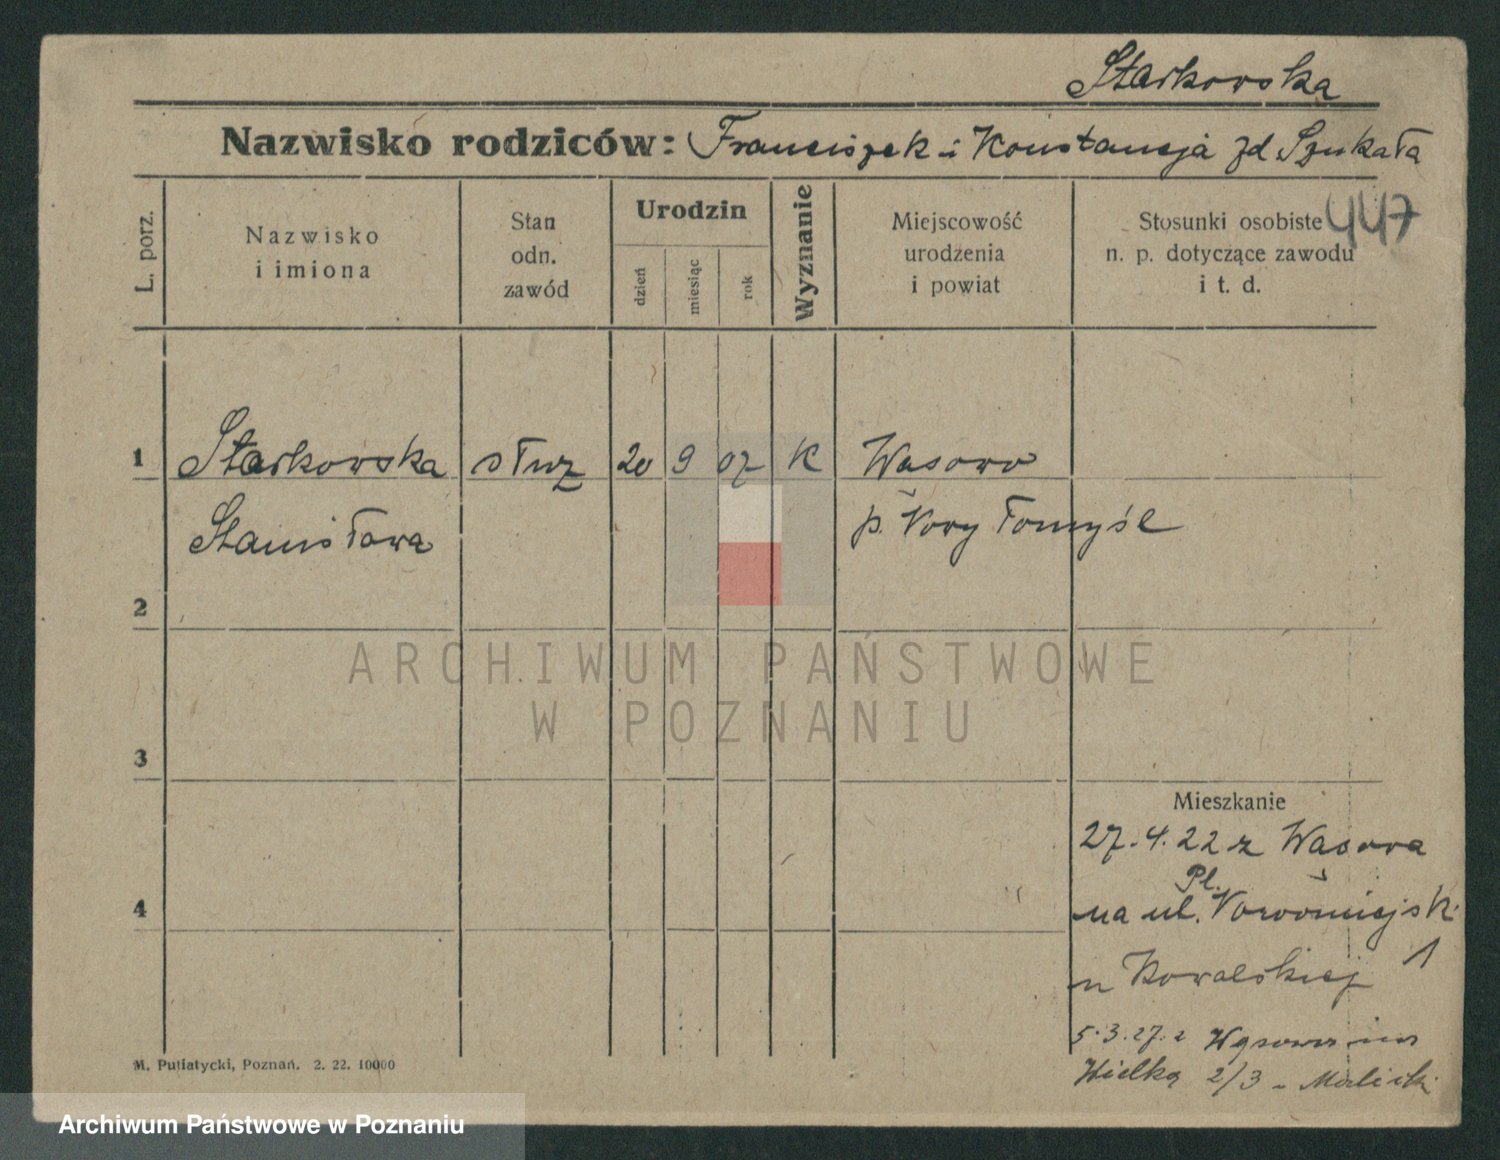 Starkowska
Nazwisko rodziców: Franciszek i Konstancja zd Szukała
L. porz.
Nazwisko
i imiona
Stan
odn.
zawód
Urodzin
dzień
miesiąc
rok
Wyznanie
Miejscowość
urodzenia
i powiat
Stosunki osobiste
n. p. dotyczące zawodu
i t. d.
447
1 Starkowska służ 20 9 07 K Wąsowo
Stanisława p. Nowy Tomyśl
2
ARCHIWUM PAŃSTWOWE
W POZNANIU
3
Mieszkanie
27.4.22 z Wąsowa
Pl.
na ul. Nowomiejsk.
4
u Kowalskiej 1
5.3.27. z Wąsowa na
Wielką 2/3 - Malicki
M. Putiatycki, Poznań. 2. 22. 10000
Archiwum Państwowe w Poznaniu